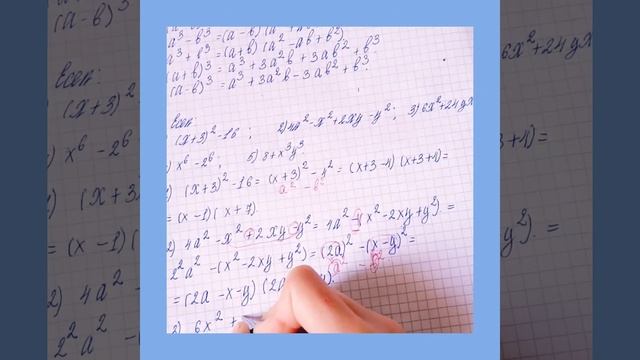 a³-b³=(a-b)(a²
a³+b³=(a+b)(a²-ab+b²)
(a+b)³=a³+3a²b+3ab²+b³
(a-b)³=a³+3a²b-3ab²+b³.
Есеп:
(x+3)²-16; 2) 4a²-x²+2xy-y²; 3) 6x²+24yx
x⁶-2⁶; 5) 8+x³y³.
(x+3)²-16=(x+3)²-4²=(x+3-4)(x+3+4)=
a²-b²
=(x-1)(x+7)
2) 4a²-x²+2xy-y²=4a²-(x²-2xy+y²)=
2²a²-(x²-2xy+y²)=(2a)²-(x-y)²=
=(2a-x-y)(2a
6x²+